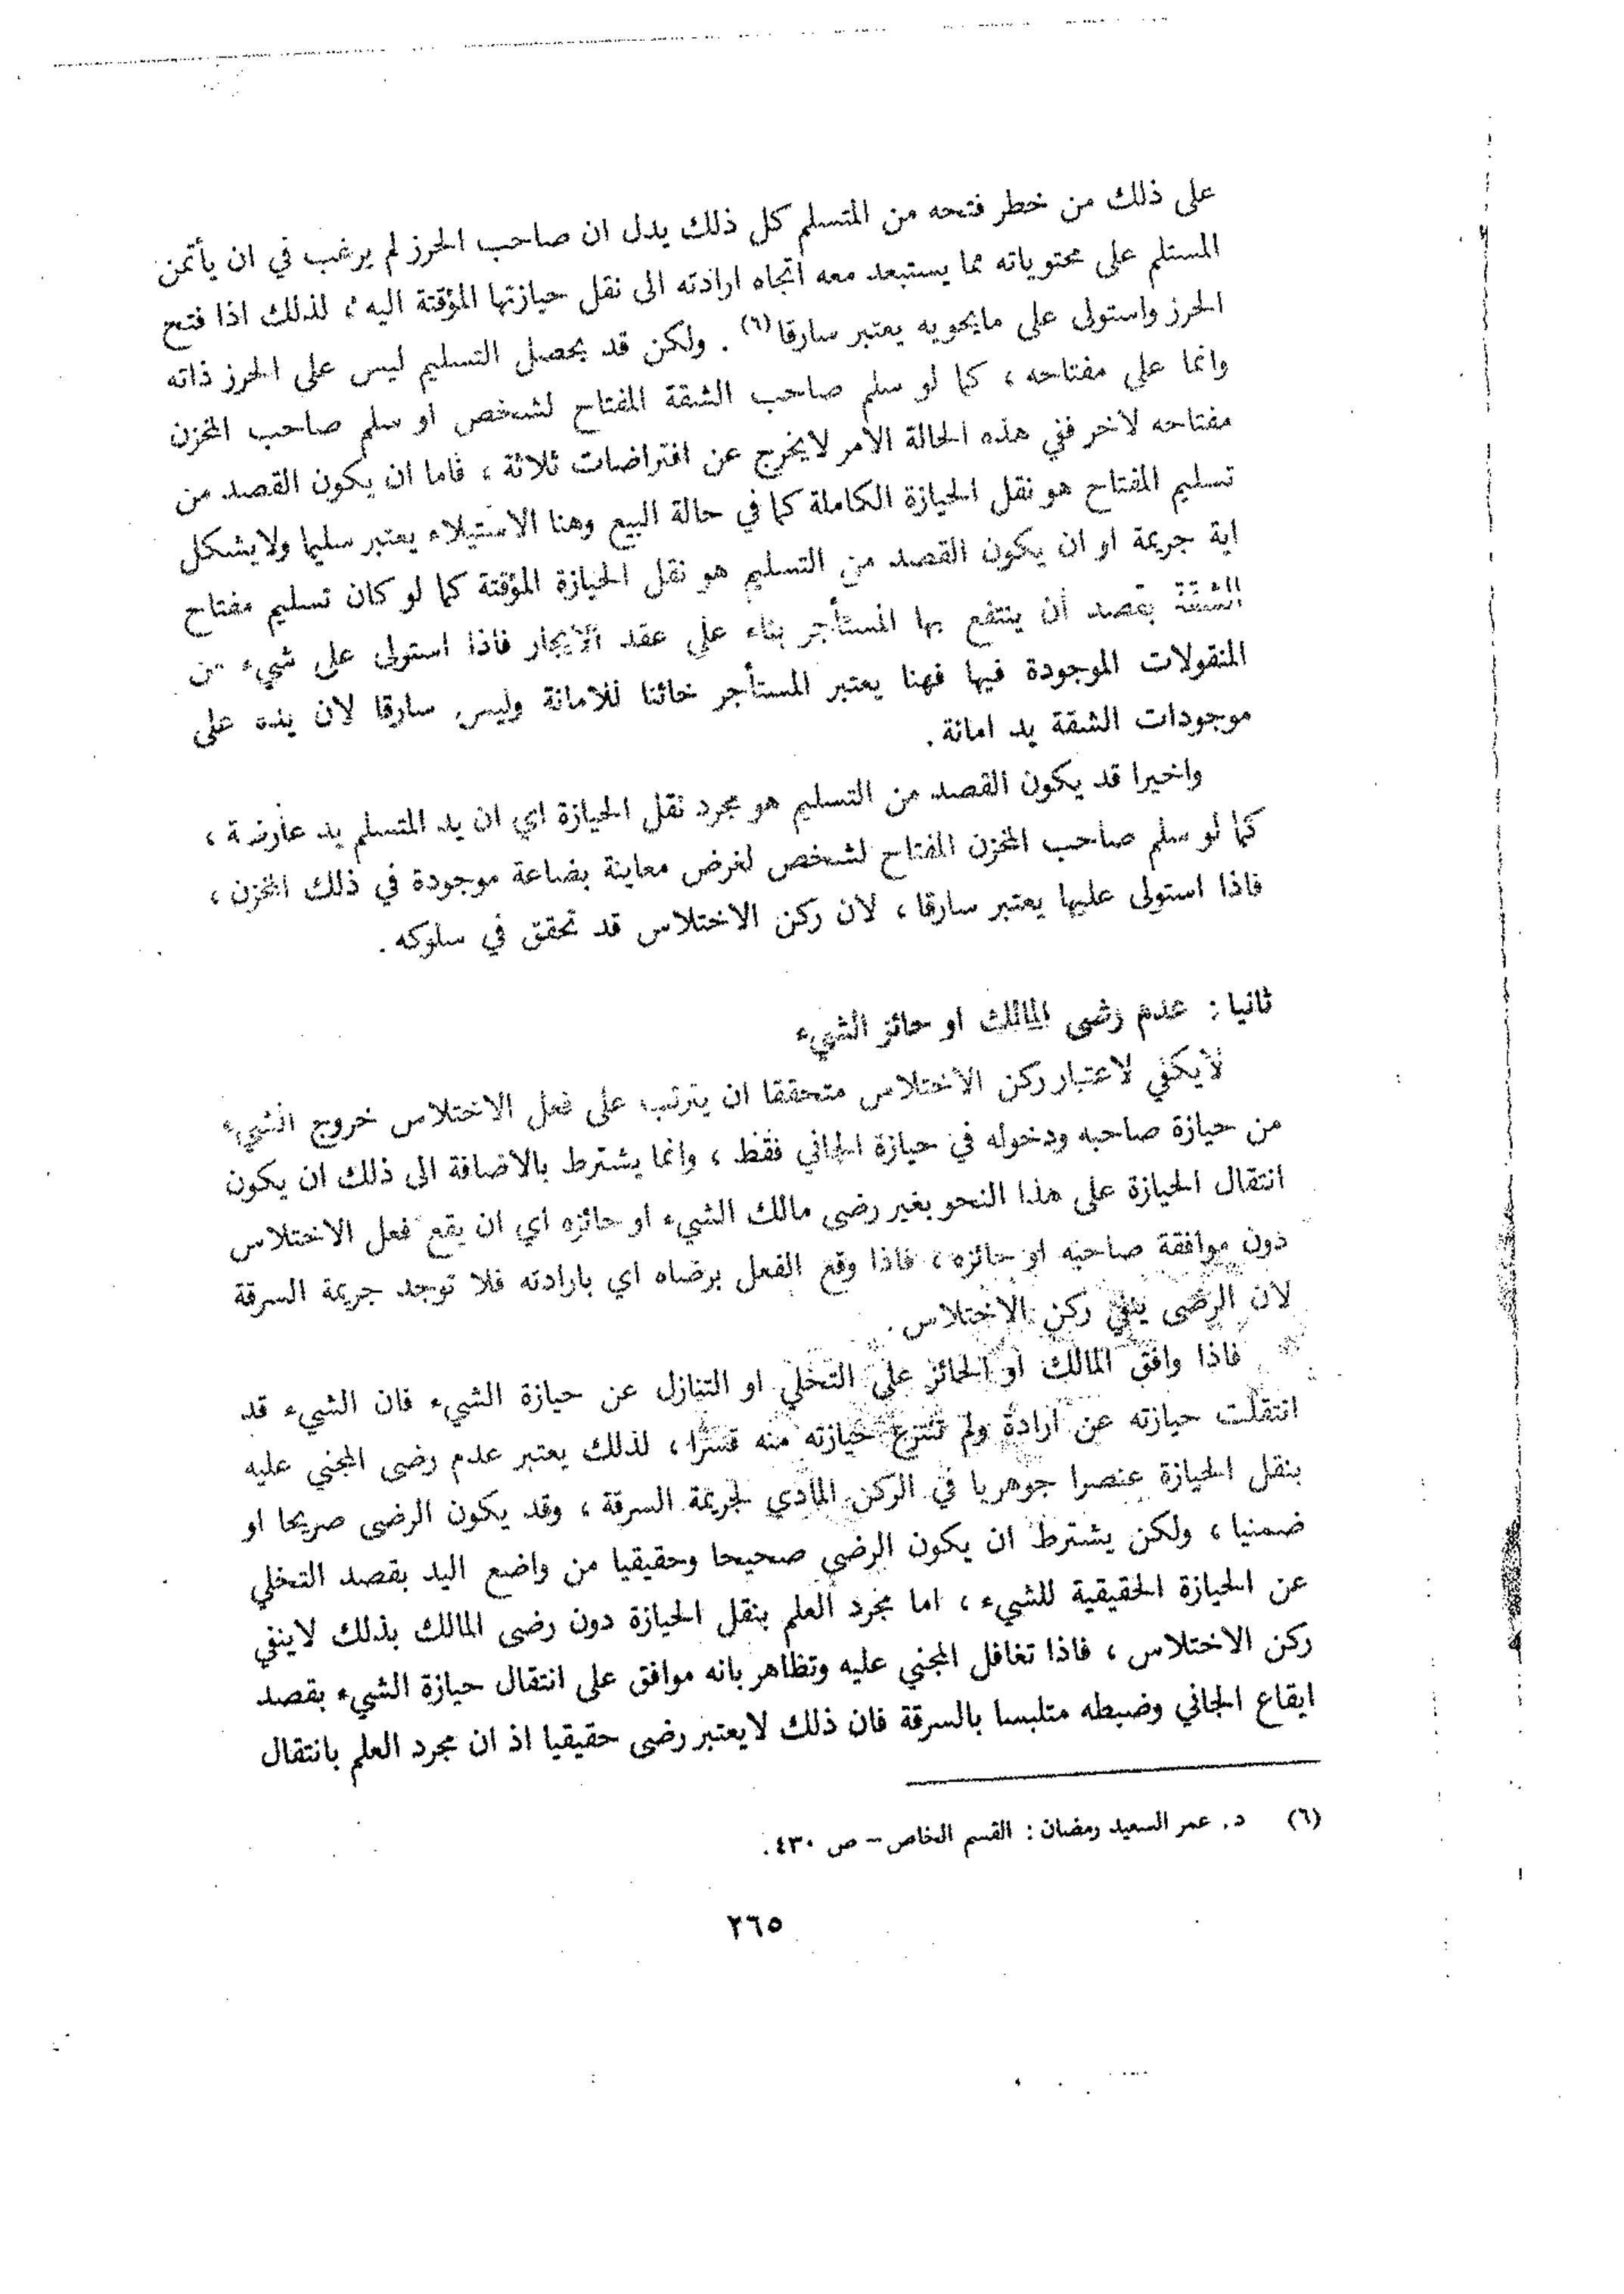 على ذلك من خطر فتحه من المتسلم كل ذلك يدل ان صاحب الحرز لم يرغب في ان يأتمن
المستلم على محتوياته مما يستبعد معه اتجاه ارادته الى نقل حيازتها المؤقتة اليه ، لذلك اذا فتح
الحرز واستولى على مايحويه يعتبر سارقا(٦) . ولكن قد يحصل التسليم ليس على الحرز ذاته
وانما على مفتاحه ، كما لو سلم صاحب الشقة المفتاح لشخص او سلم صاحب المخزن
مفتاحه لاخر ففي هذه الحالة الأمر لايخرج عن افتراضات ثلاثة ، فاما ان يكون القصد من
تسليم المفتاح هو نقل الحيازة الكاملة كما في حالة البيع وهنا الاستيلاء يعتبر سليما ولايشكل
اية جريمة او ان يكون القصد من التسليم هو نقل الحيازة المؤقتة كما لو كان تسليم مفتاح
الشقة بقصد أن ينتفع بها المستأجر بناء على عقد الايجار فاذا استولى على شيء من
المنقولات الموجودة فيها فهنا يعتبر المستأجر خائنا للامانة وليس سارقا لان يده على
موجودات الشقة يد امانة .
واخيرا قد يكون القصد من التسليم هو مجرد نقل الحيازة اي ان يد المتسلم يد عارضة ،
كما لو سلم صاحب المخزن المفتاح لشخص لغرض معاينة بضاعة موجودة في ذلك المخزن ،
فاذا استولى عليها يعتبر سارقا ، لان ركن الاختلاس قد تحقق في سلوكه .
ثانيا : عدم رضى المالك او حائز الشيء
لايكفي لاعتبار ركن الاختلاس متحققا ان يترتب على فعل الاختلاس خروج الشيء
من حيازة صاحبه ودخوله في حيازة الجاني فقط ، وانما يشترط بالاضافة الى ذلك ان يكون
انتقال الحيازة على هذا النحو بغير رضى مالك الشيء او حائزه اي ان يقع فعل الاختلاس
دون موافقة صاحبه او حائزه ، فاذا وقع الفعل برضاه اي بارادته فلا توجد جريمة السرقة
لان الرضى ينفي ركن الاختلاس .
فاذا وافق المالك او الحائز على التخلي او التنازل عن حيازة الشيء فان الشيء قد
انتقلت حيازته عن ارادة ولم تنتزع حيازته منه قسرا ، لذلك يعتبر عدم رضى المجني عليه
بنقل الحيازة عنصرا جوهريا في الركن المادي لجريمة السرقة ، وقد يكون الرضى صريحا او
ضمنيا ، ولكن يشترط ان يكون الرضى صحيحا وحقيقيا من واضع اليد بقصد التخلي
عن الحيازة الحقيقية للشيء ، اما مجرد العلم بنقل الحيازة دون رضى المالك بذلك لاينفي
ركن الاختلاس ، فاذا تغافل المجني عليه وتظاهر بانه موافق على انتقال حيازة الشيء بقصد
ايقاع الجاني وضبطه متلبسا بالسرقة فان ذلك لايعتبر رضى حقيقيا اذ ان مجرد العلم بانتقال
(٦) د. عمر السعيد رمضان : القسم الخاص – ص ٤٣٠ .
٢٦٥